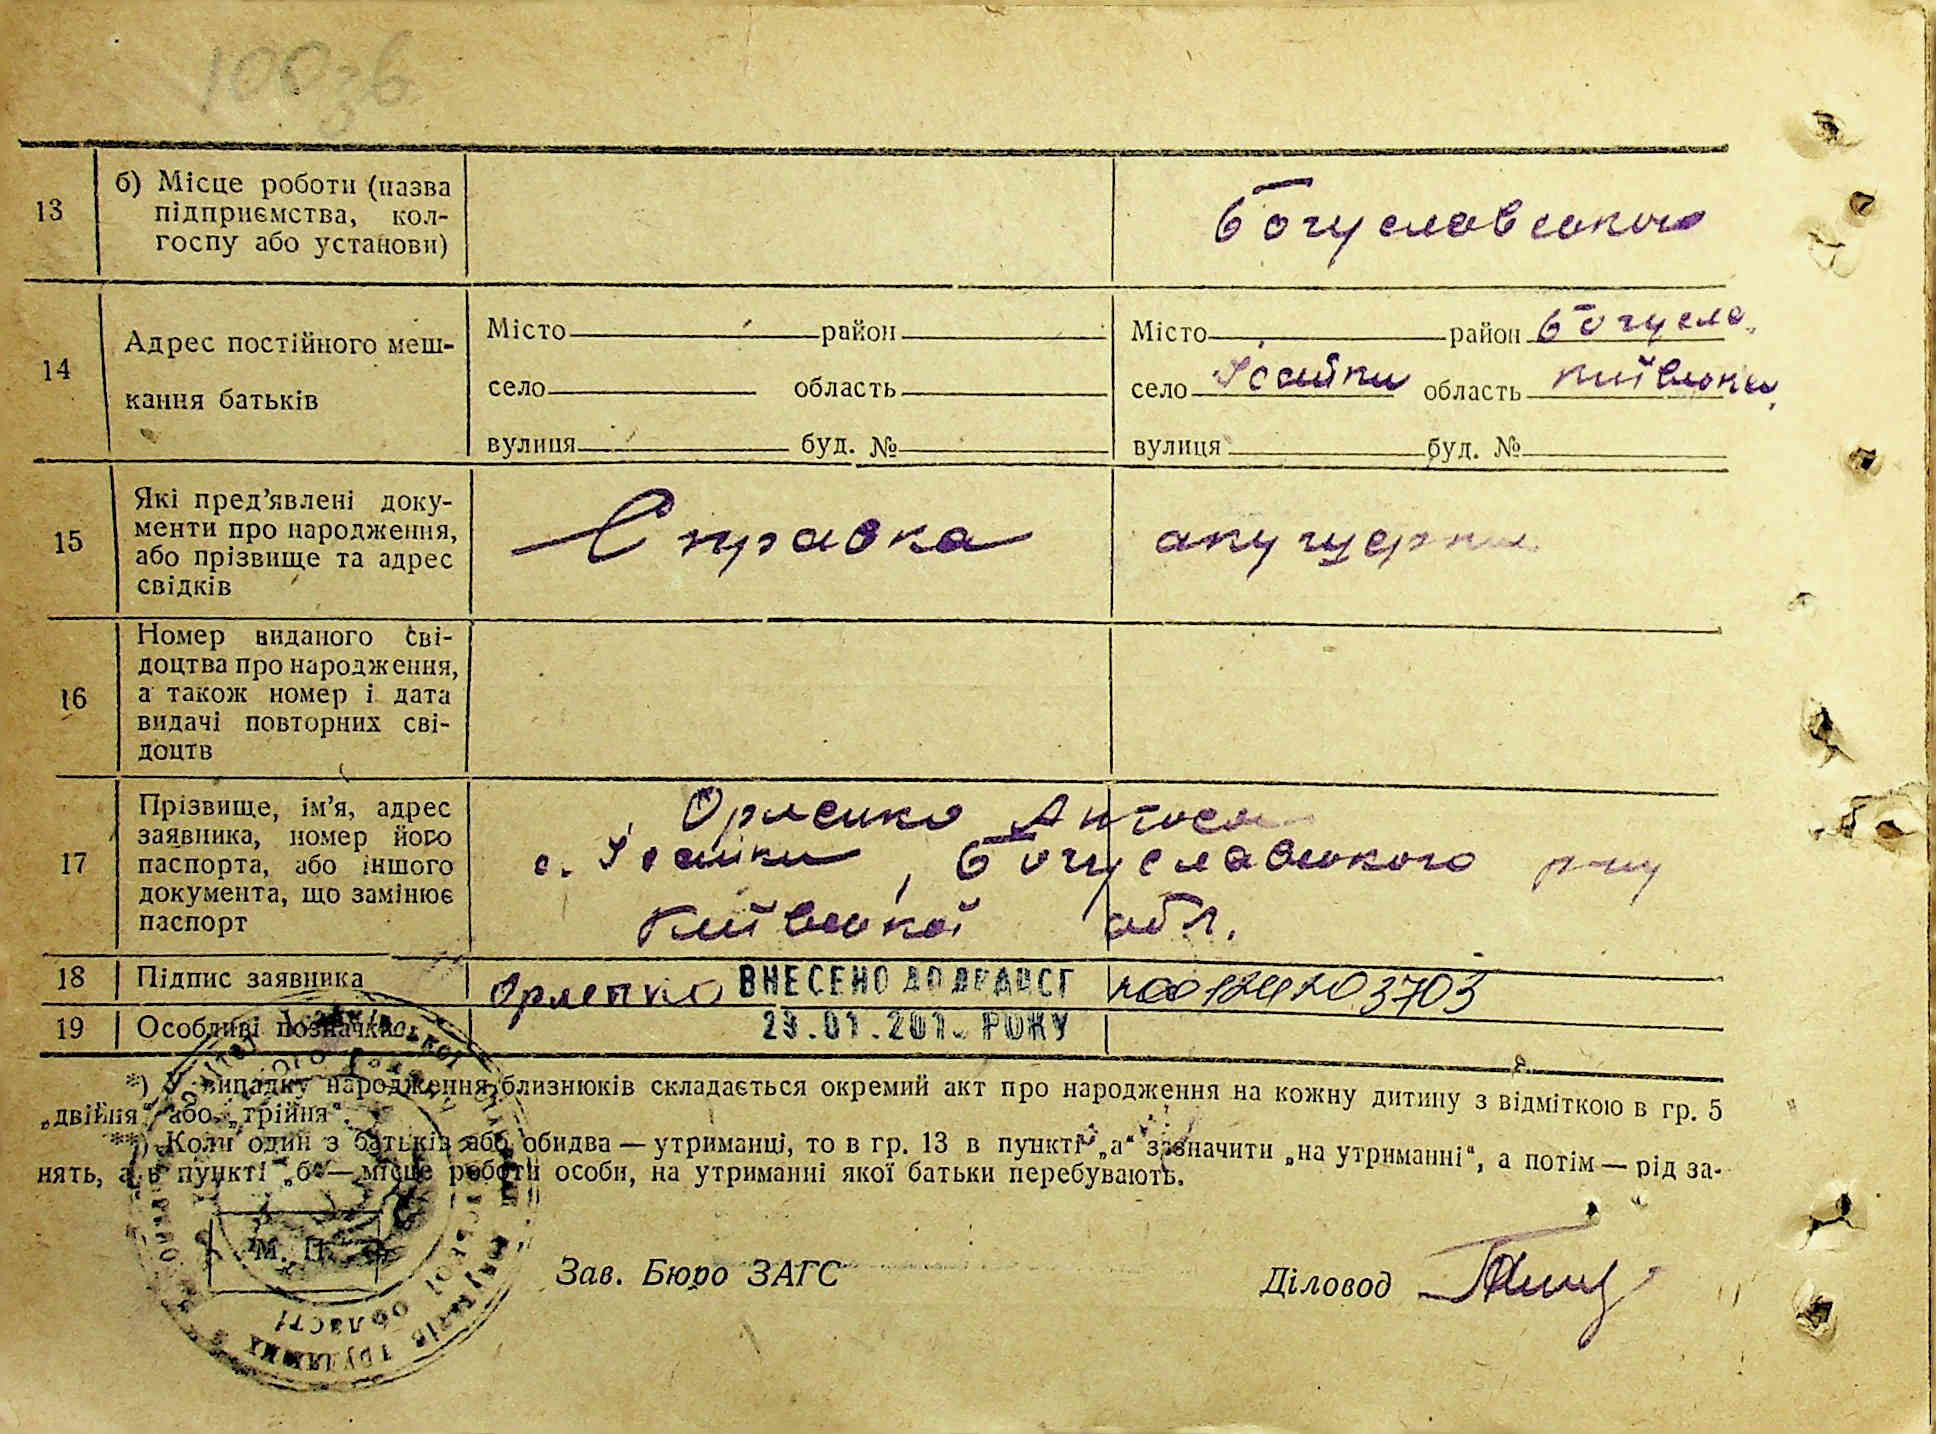 100зв
13 б) Місце роботи (назва
підприємства, кол-
госпу або установи)
Богуславського
14 Адрес постійного меш-
кання батьків
Місто район
село область
вулиця буд. №
Місто район Богусла
село Ісайки область Київськи
вулиця буд. №
15 Які пред’явлені доку-
менти про народження,
або прізвище та адрес
свідків
Справка акушерки
16 Номер виданого сві-
доцтва про народження,
а також номер і дата
видачі повторних сві-
доцтв
17 Прізвище, ім’я, адрес
заявника, номер його
паспорта, або іншого
документа, що замінює
паспорт
Орленко Антося
с. Ісайки, Богуславського р-ну
Київської обл.
18 Підпис заявника Орленко ВНЕСЕНО ДО ДРАЦСГ
19 Особливі позначки РОКУ
*) У випадку народження близнюків складається окремий акт про народження на кожну дитину з відміткою в гр. 5
„двійня“ або „трійня“.
**) Коли один з батьків або обидва — утриманці, то в гр. 13 в пункті „а“ зазначити „на утриманні“, а потім — рід за-
нять, а в пункті „б“ — місце роботи особи, на утриманні якої батьки перебувають.
М. П.
Зав. Бюро ЗАГС Діловод
ОБЛАСТІ
ТРУДЯЩИХ